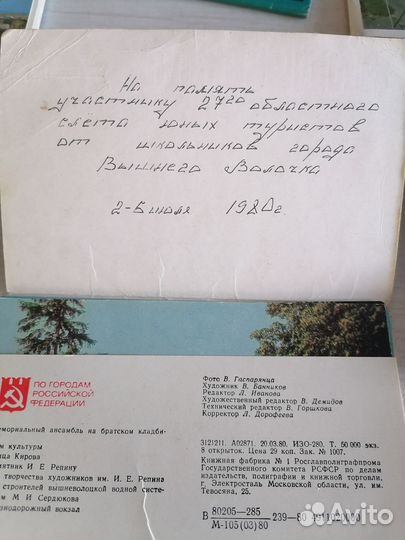 На память
участнику 27го областного
слёта юных туристов
от школьников города
Вышнего Волочка
2-6 июля 1980г.
ПО ГОРОДАМ
РОССИЙСКОЙ
ФЕДЕРАЦИИ
емориальный ансамбль на братском кладби-
м культуры
ица Кирова
мятник И. Е. Репину
творчества художников им. И. Е. Репина
строителей вышневолоцкой водной систе-
М. И. Сердюкова
знодорожный вокзал
Фото В. Гаспарянца
Художник В. Банников
Редактор Л. Иванова
Художественный редактор В. Демидов
Технический редактор В. Горшкова
Корректор Л. Дорофеева
3121211. А02871. 20.03.80. ИЗО-280. Т. 50 000 экз.
8 открыток. Цена 29 коп. Зак. № 1007.
Книжная фабрика № 1 Росглавполиграфпрома
Государственного комитета РСФСР по делам
издательств, полиграфии и книжной торговли,
г. Электросталь Московской области, ул. им.
Тевосяна, 25.
В 80205-285
М-105(03)80
239-80 4911020000
Avito